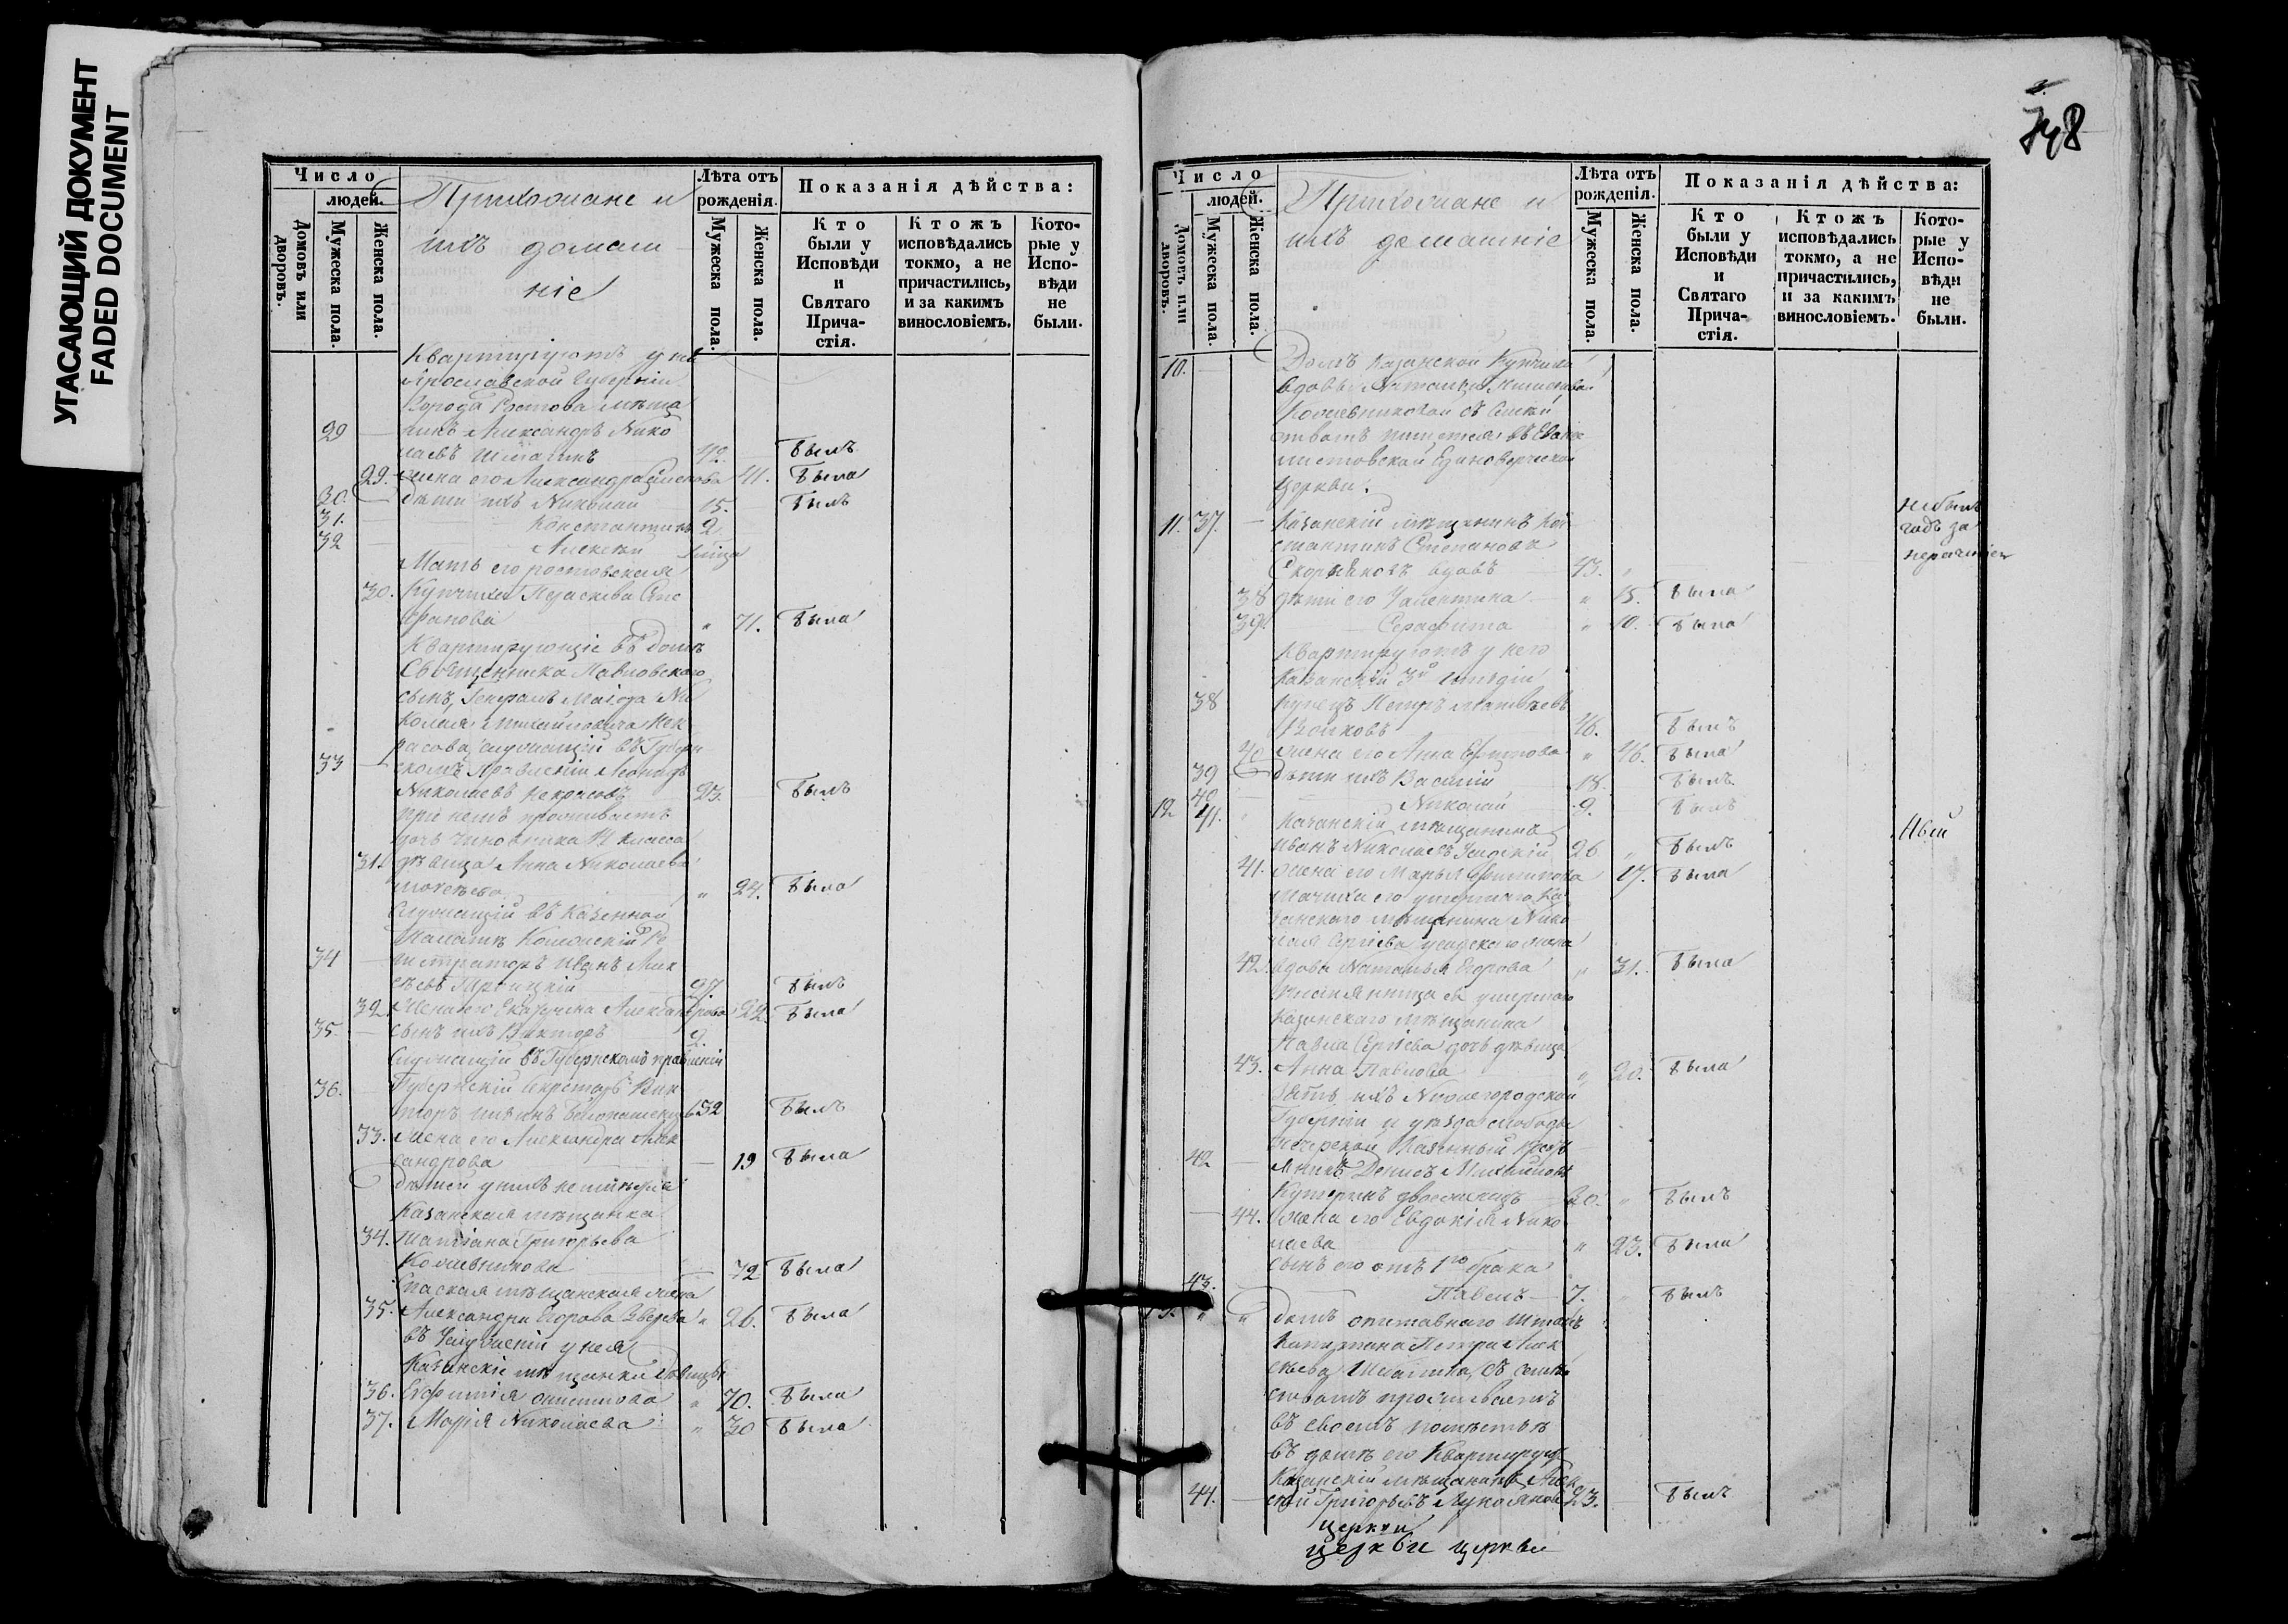 УГАСАЮЩИЙ ДОКУМЕНТ
FADED DOCUMENT
Число
людей.
Домовъ или дворовъ.
Мужеска пола.
Женска пола.
Прихожане и
ихъ домаш
ніе
Лѣта отъ рожденія.
Мужеска пола.
Женска пола.
Показанія дѣйства:
Кто были у Исповѣди и Святаго Прича-стія.
Ктожъ исповѣдались токмо, а не причастились, и за какимъ винословіемъ.
Кото-рые у Испо-вѣди не были.
Квартируютъ у не
Ярославской Губерніи
Города Ростова мѣща
29 нинъ Александръ Нико
лаевъ 42. былъ
29. жена его Александра 41. была
30. дѣти ихъ Николай 15. былъ
31. Константинъ 2
32 Алексѣй
Мать его ростовская
30. Купчиха Параскева
71. была
Квартирующіе въ домѣ
Священника Павловскаго
сынъ Генералъ Маіора Ни
колая Михайловича Нек
расова, служащій въ Губерн
33 скомъ Правленіи Леонидъ
Николаевъ Некрасовъ 23. былъ
при немъ проживаетъ
дочь чиновника 14 класса
31. дѣвица Анна Николаева
24. была
Служащій въ Казенной
Палатѣ Коллежскій Ре
34 гистраторъ Иванъ Алек
сѣевъ Троицкій 27. былъ
32. Жена его Екатерина Александрова 22. была
35 сынъ ихъ Викторъ 2.
Служащій въ Губернскомъ правленіи
36. Губернскій Секретарь Вик
торъ 32 былъ
33. жена его Александра Алек
сандрова 19 была
дѣтей у нихъ не
Казанская мѣщанка
34. Татіана Григорьева
Кожевникова 72 была
Спаская мѣщанская жена
35. Александра Егорова Зверева 26. была
въ услуженіи у нея
Казанскіе мѣщанки дѣвицы
36. Евфимія 70. была
37. Марія Николаева 30 была
748
Число
людей.
Домовъ или дворовъ.
Мужеска пола.
Женска пола.
Прихожане и
ихъ домашніе
Лѣта отъ рожденія.
Мужеска пола.
Женска пола.
Показанія дѣйства:
Кто были у Исповѣди и Святаго Прича-стія.
Ктожъ исповѣдались токмо, а не причастились, и за какимъ винословіемъ.
Кото-рые у Испо-вѣди не были.
10. Домъ Казанской Купчихи
вдовы Натальи
Кожевниковой съ Семей
ствомъ пишется въ Еванге
листовской Единоверческой
Церкви.
11. 37. Казанскій мѣщанинъ Кон
стантинъ Степановъ
Скорняковъ вдовъ 43.
небылъ
годъ за
нераченіем
38 дѣти его Валентина 15. была
39. Серафима 10. была
Квартируютъ у него
Казанскій 3й гильдіи
38 купецъ Петръ Матвѣевъ
46. былъ
40 жена его Анна 46. была
39 дѣти ихъ Василій 18. былъ
40 Николай 9. былъ
12 41. Казанскій мѣщанинъ
Иванъ Николаевъ 26 былъ
41. жена его Марья Филипова 17. была
мачиха его умершаго Ка
занскаго мѣщанина Нико
лая Сергіева жена
42. вдова Наталья Егорова 31. была
племянница ея умершаго
казанскаго мѣщанина
Павла Сергіева дочь дѣвица
43. Анна Павлова 20. была
Зять ихъ Нижегородской
Губерніи и уѣзда слободы
Печерской Казенный Крест
42 янинъ Денисъ Михайловъ
30. былъ
44. жена его Евдокія Нико
лаева 23. была
сынъ его отъ 1го брака
43. Павелъ 7. былъ
13. домъ отставнаго Штабъ
Капитана Петра Алек
сѣева съ семей
ствомъ проживаетъ
въ своемъ помѣстьѣ
въ домѣ его Квартируетъ
Казанскій мѣщанинъ Алек
44. сѣй Григорьевъ 23. былъ
церкви
церкви церкви